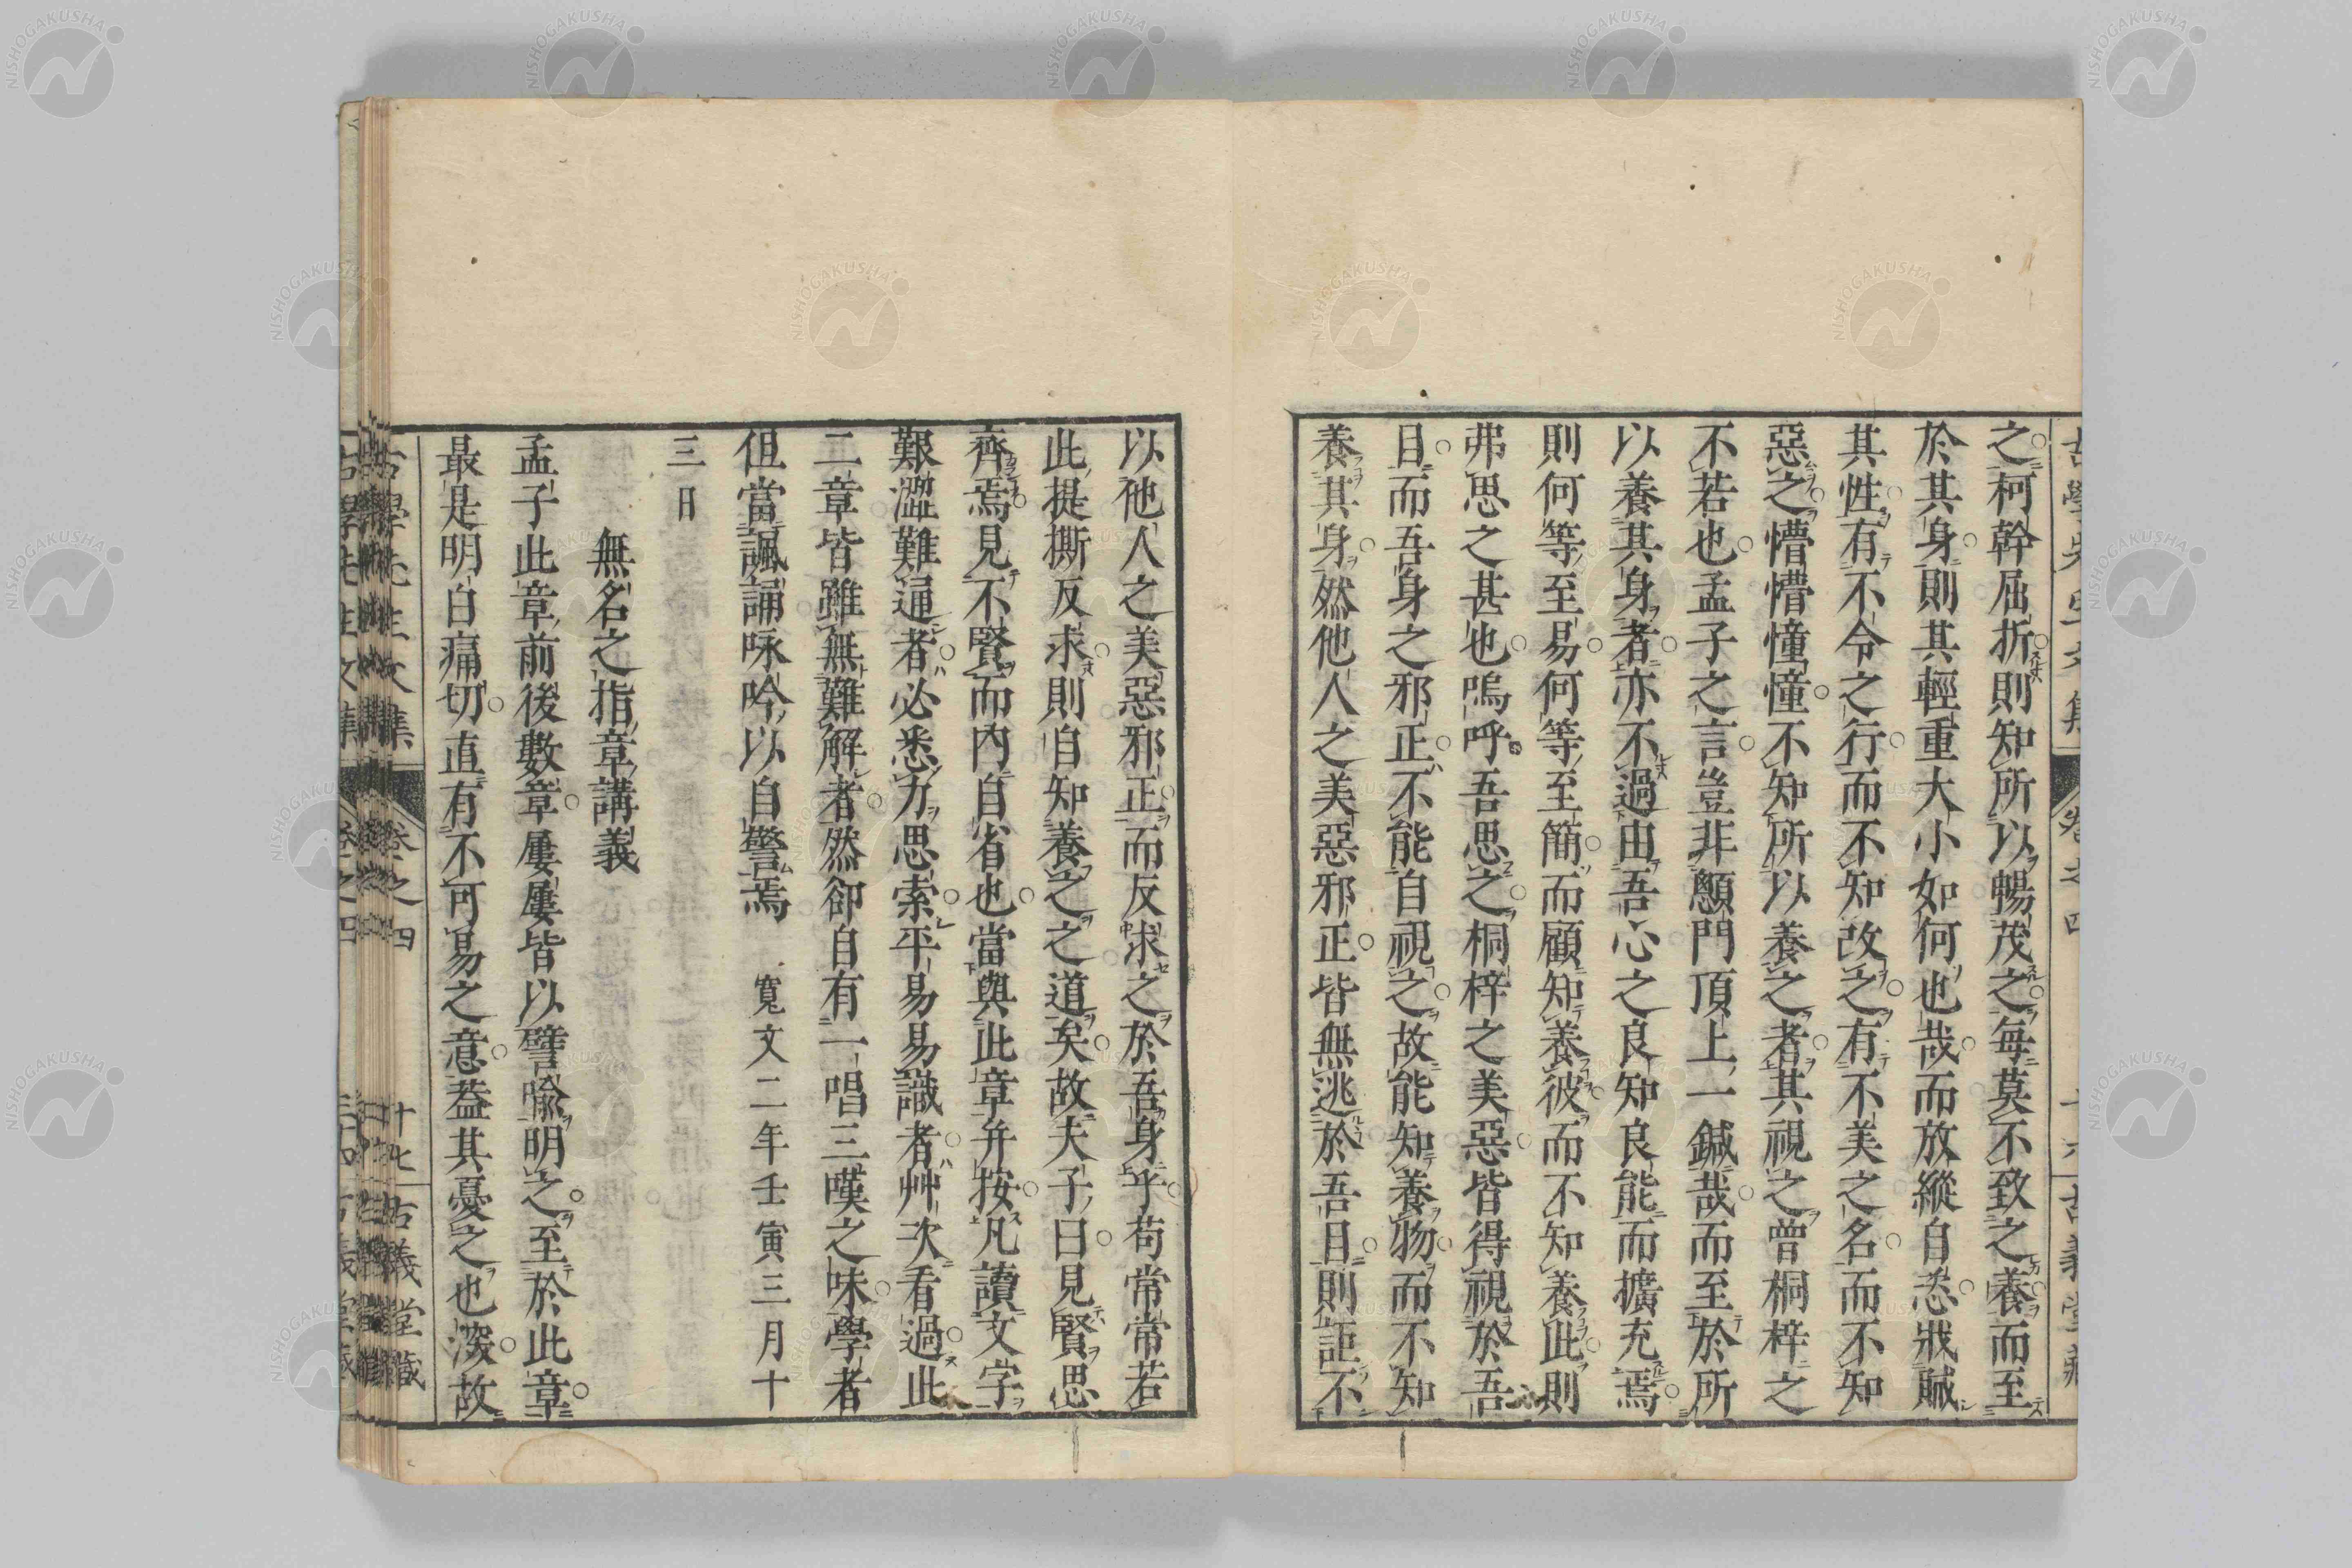 之柯幹屈折則知所以暢茂之毎莫不致之養而至
於其身則其輕重大小如何也哉而放縱自恣戕賊
其性有不令之行而不知改之有不美之名而不知
惡之懵懵憧憧不知所以養之者其視之曾桐梓之
不若也孟子之言豈非顖門頂上一鍼哉而至於所
以養其身者亦不過由吾心之良知良能而擴充焉
則何等至易何等至簡而顧知養彼而不知養此則
弗思之甚也嗚呼吾思之桐梓之美惡皆得視於吾
目而吾身之邪正不能自視之故能知養物而不知
養其身然他人之美惡邪正皆無逃於吾目則詎不
以他人之美惡邪正而反求之於吾身乎苟常常若
此提撕反求則自知養之之道矣故夫子曰見賢思
齊焉見不賢而内自省也當與此章并按凡讀文字
艱澀難通者必悉力思索平易易識者艸次看過此
二章皆雖無難解者然卻自有一唱三嘆之味學者
但當諷誦咏吟以自警焉 寬文二年壬寅三月十
三日
無名之指章講義
孟子此章前後數章屢屢皆以譬喩明之至於此章
最是明白痛切直有不可易之意葢其憂之也深故
古學先生文集 卷之四 十七 古義堂藏
NISHOGAKUSHA